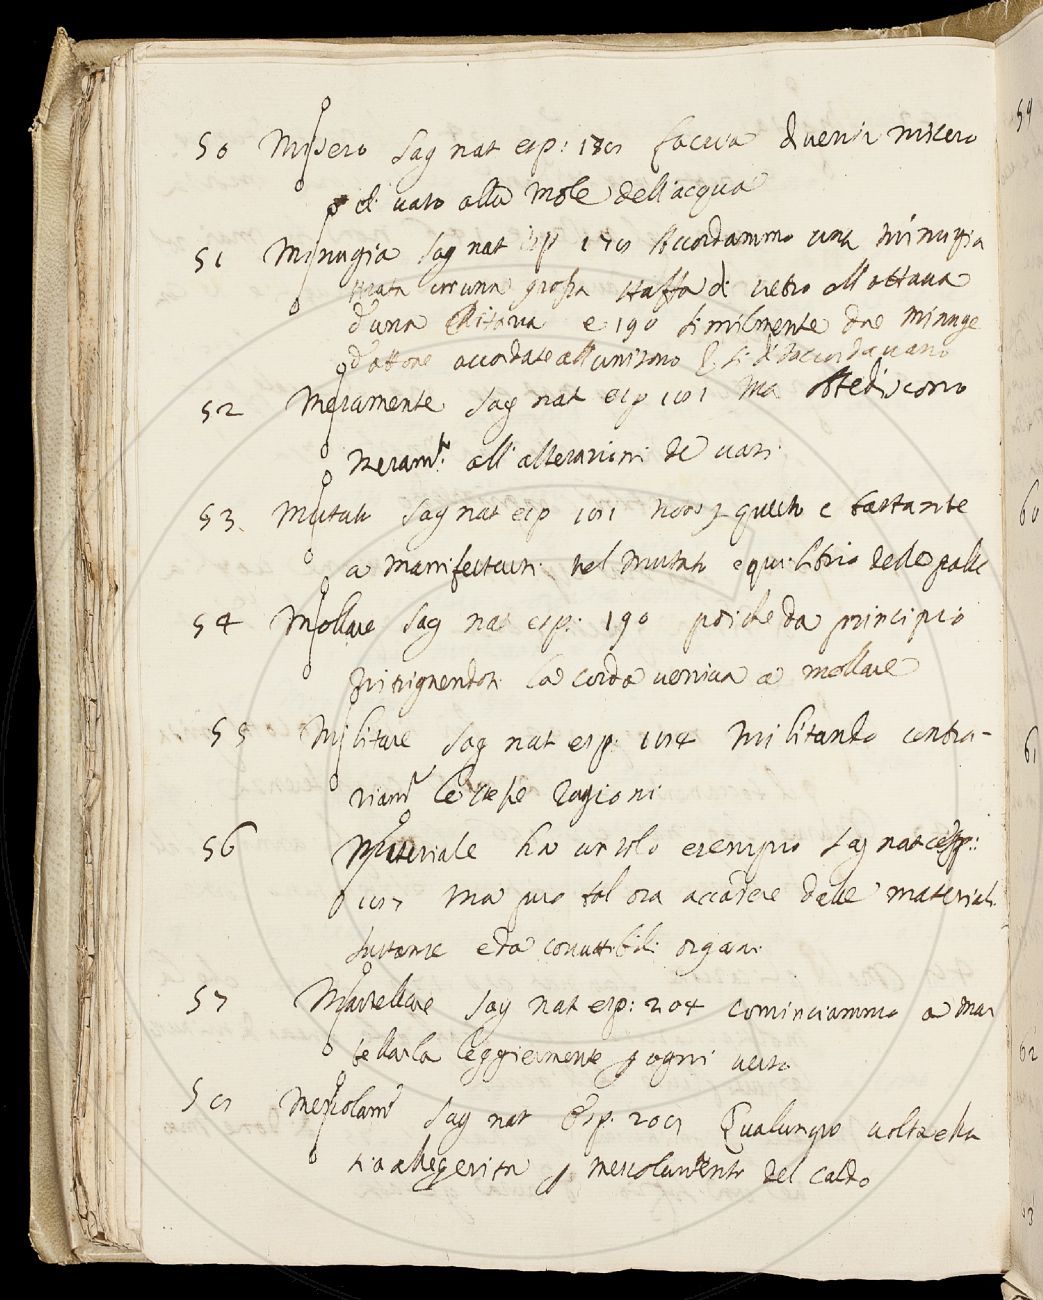 50 Misero Sag nat esp: 188 faceva d venir misero
di vaso alla Mole dell'acqua
51 Minugia Sag nat esp 178 Accordammo una minugia
tirata una grossa staffa di vetro all ottava
d'una e 190 similmente due minuge
d'ottone accordate all unisono si discordavano
52 Meramente Sag nat esp 181 Ma obbediscono
meram.te all'alterazioni de vasi
53 Mutato Sag nat esp 181 questo e bastante
a manifestarsi nel mutato equilibrio delle palle
54 Mollare Sag nat esp: 190 poiche da principio
la corda veniva a mollare
55 Militare Sag nat esp: 184 Militando contra-
riam.te le stesse ragioni
56 Materiale ha un solo esempio Sag nat esp:
187 Ma puo tal ora accadere dalle materiali
sustanze organi
57 Martellare Sag nat esp: 204 cominciammo a mar
tellarla leggiermente p ogni verso
58 Mescolam.to Sag nat Esp: 208 Qualunque volta ella
sia allegerita p mescolamento del caldo
59
60
61
62
63